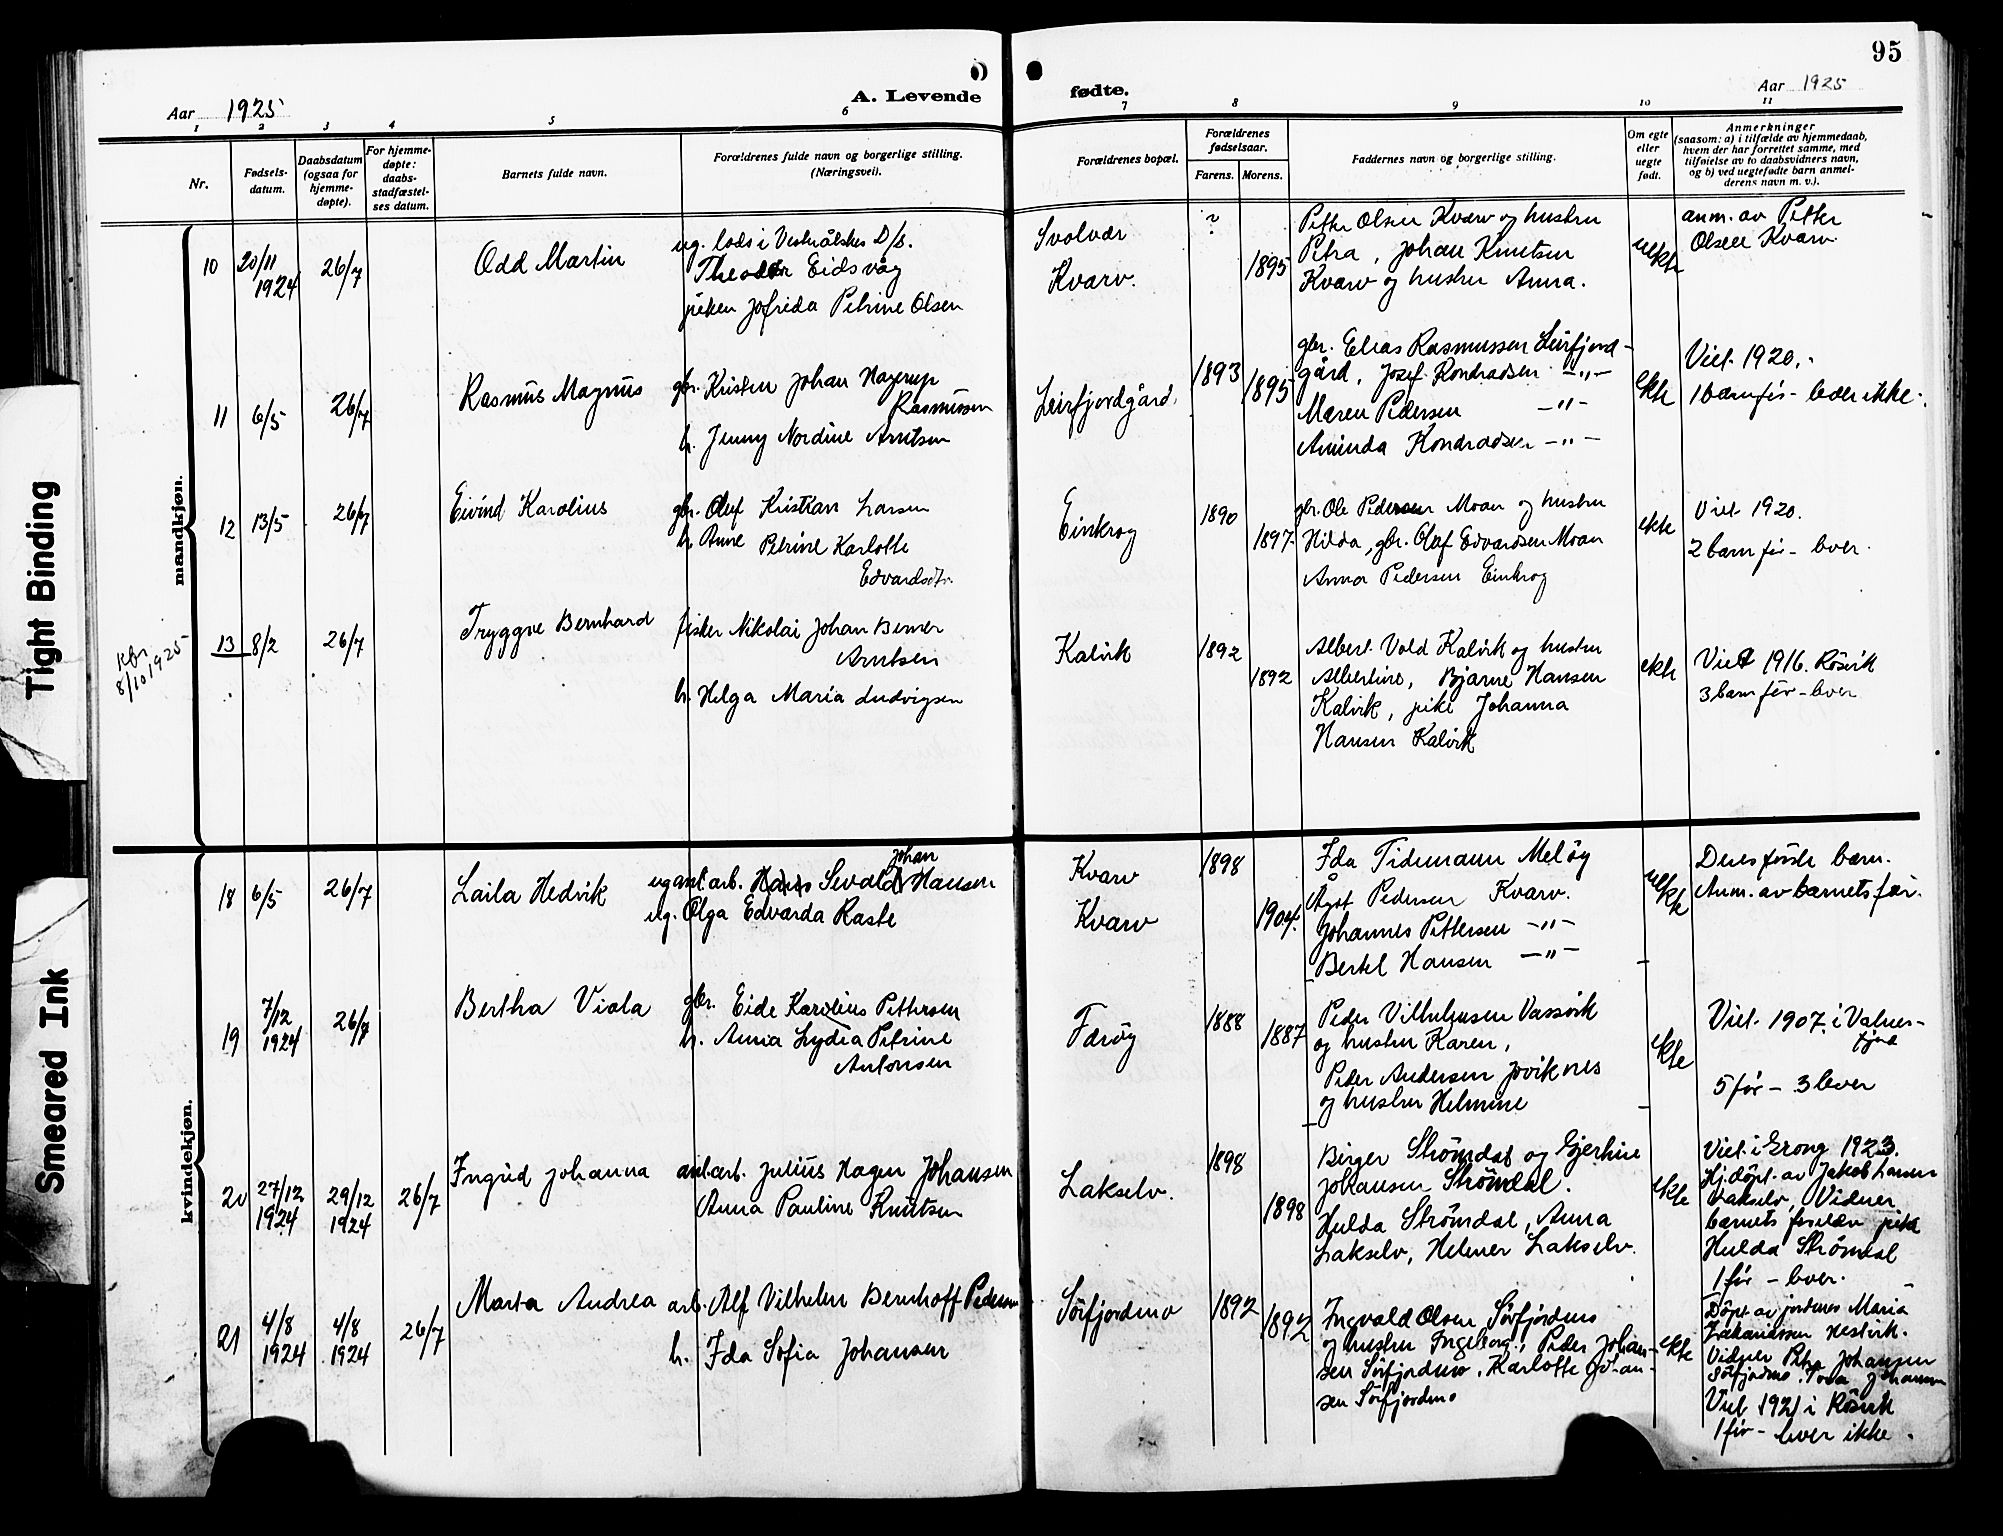 95
Aar 1925
A. Levende
fødte.
Aar 1925
1 2 3 4 5 6 7 8 9 10 11
Nr.
Fødsels-
datum.
Daabsdatum
(ogsaa for
hjemme-
døpte).
For hjemme-
døpte:
daabs-
stadfæstel-
ses datum.
Barnets fulde navn.
Forældrenes fulde navn og borgerlige stilling.
(Næringsvei).
Forældrenes bopæl.
Forældrenes
fødselsaar.
Farens. Morens.
Faddernes navn og borgerlige stilling.
Om egte
eller
uegte
født.
Anmerkninger
(saasom: a) i tilfælde av hjemmedaab,
hvem der har forrettet samme, med
tilføielse av to daabsvidners navn,
og b) ved uegtefødte barn anmel-
derens navn m. v.).
mandkjøn.
10
20/11
1924
26/7
Odd Martin
ug. lods i Vesterålskes D/S.
Theodor Eidsvåg
piken Jofrida Petrine Olsen
Svolvær
Kvarv.
?
1895
Petter Olsen Kvarv og hustru
Petra, Johan Knutsen
Kvarv og hustru Anna.
uekte
anm. av Petter
Olsen Kvarv
11
6/5
26/7
Rasmus Magnus
gbr. Kristen Johan Hagerup
Rasmussen
h. Jenny Nordine Arntsen
Leirfjordgård.
1893
1895
gbr. Elias Rasmussen Leirfjord-
gård, Josef Kondradsen -"-
Maren Pedersen -"-
Aminda Kondradsen -"-
ekte
Viet 1920.
1 barn før - lever ikke.
12
13/5
26/7
Eivind Karolius
gbr. Oluf Kristian Larsen
h. Anne Petrine Karlotte
Edvardsdtr.
Einkrog
1890
1897
gbr. Ole Pedersen Moan og hustru
Hilda, gbr. Olaf Edvardsen Moan
Anna Pedersen Einkrog
ekte
Viet 1920.
2 barn før - lever.
kbr
8/10 1925
13
8/2
26/7
Tryggve Bernhard
fisker Nikolai Johan Berner
Arntsen
h. Helga Maria Ludvigsen
Kalvik
1892
1892
Albert Vold Kalvik og hustru
Albertine, Bjarne Hansen
Kalvik, pike Johanna
Hansen Kalvik
ekte
Viet 1916. Røsvik
3 barn før - lever
kvindekjøn.
18
6/5
26/7
Laila Hedvik
Johan
ug anl. arb. Hans Sevald Hansen
ug. Olga Edvarda Raste
Kvarv
Kvarv
1898
1904.
Ida Tidemann Meløy
Ågot Pedersen Kvarv.
Johannes Pettersen -"-
Bertel Hansen -"-
uekte
Deres første barn.
Anm. av barnets far.
19
7/12
1924
26/7
Bertha Viola
gbr. Eide Karolius Pettersen
h. Anna Lydia Petrine
Antonsen
Færøy
1888
1887
Peder Vilhelmsen Vassvik
og hustru Karen,
Peder Andersen Joviknes
og hustru Helmine
ekte
Viet 1907 i Valnes-
fjord
5 før - 3 lever
20
27/12
1924
29/12
1924
26/7
Ingrid Johanna
anl. arb. Julius Hagen Johansen
Anna Pauline Knutsen
Lakselv.
1898
1898
Birger Strømdal og Gjertine
Johansen Strømdal.
Hulda Strømdal, Anna
Lakselv, Helmer Lakselv.
ekte
Viet i Grong 1923.
Hj.døpt. av Jakob Larsen
Lakselv, Vidner
barnets foreldre pike
Hulda Strømdal
1 før - lever.
21
4/8
1924
4/8
1924
26/7
Marta Andrea
arb. Alf Vilhelm Bernhoff Pedersen
h. Ida Sofia Johansen
Sørfjordmo
1892
1892
Ingvald Olsen Sørfjordmo
og hustru Ingeborg, Peder Johan-
sen Sørfjordmo, Karlotte Johan-
sen Sørfjordmo
ekte
Døpt av jordmor Maria
Zakariassen Hestvik.
Vidner Petra Johansen
Sørfjordmo, Tora Johansen
Viet 1921 i Røsvik
1 før - lever ikke.
Tight Binding
Smeared Ink